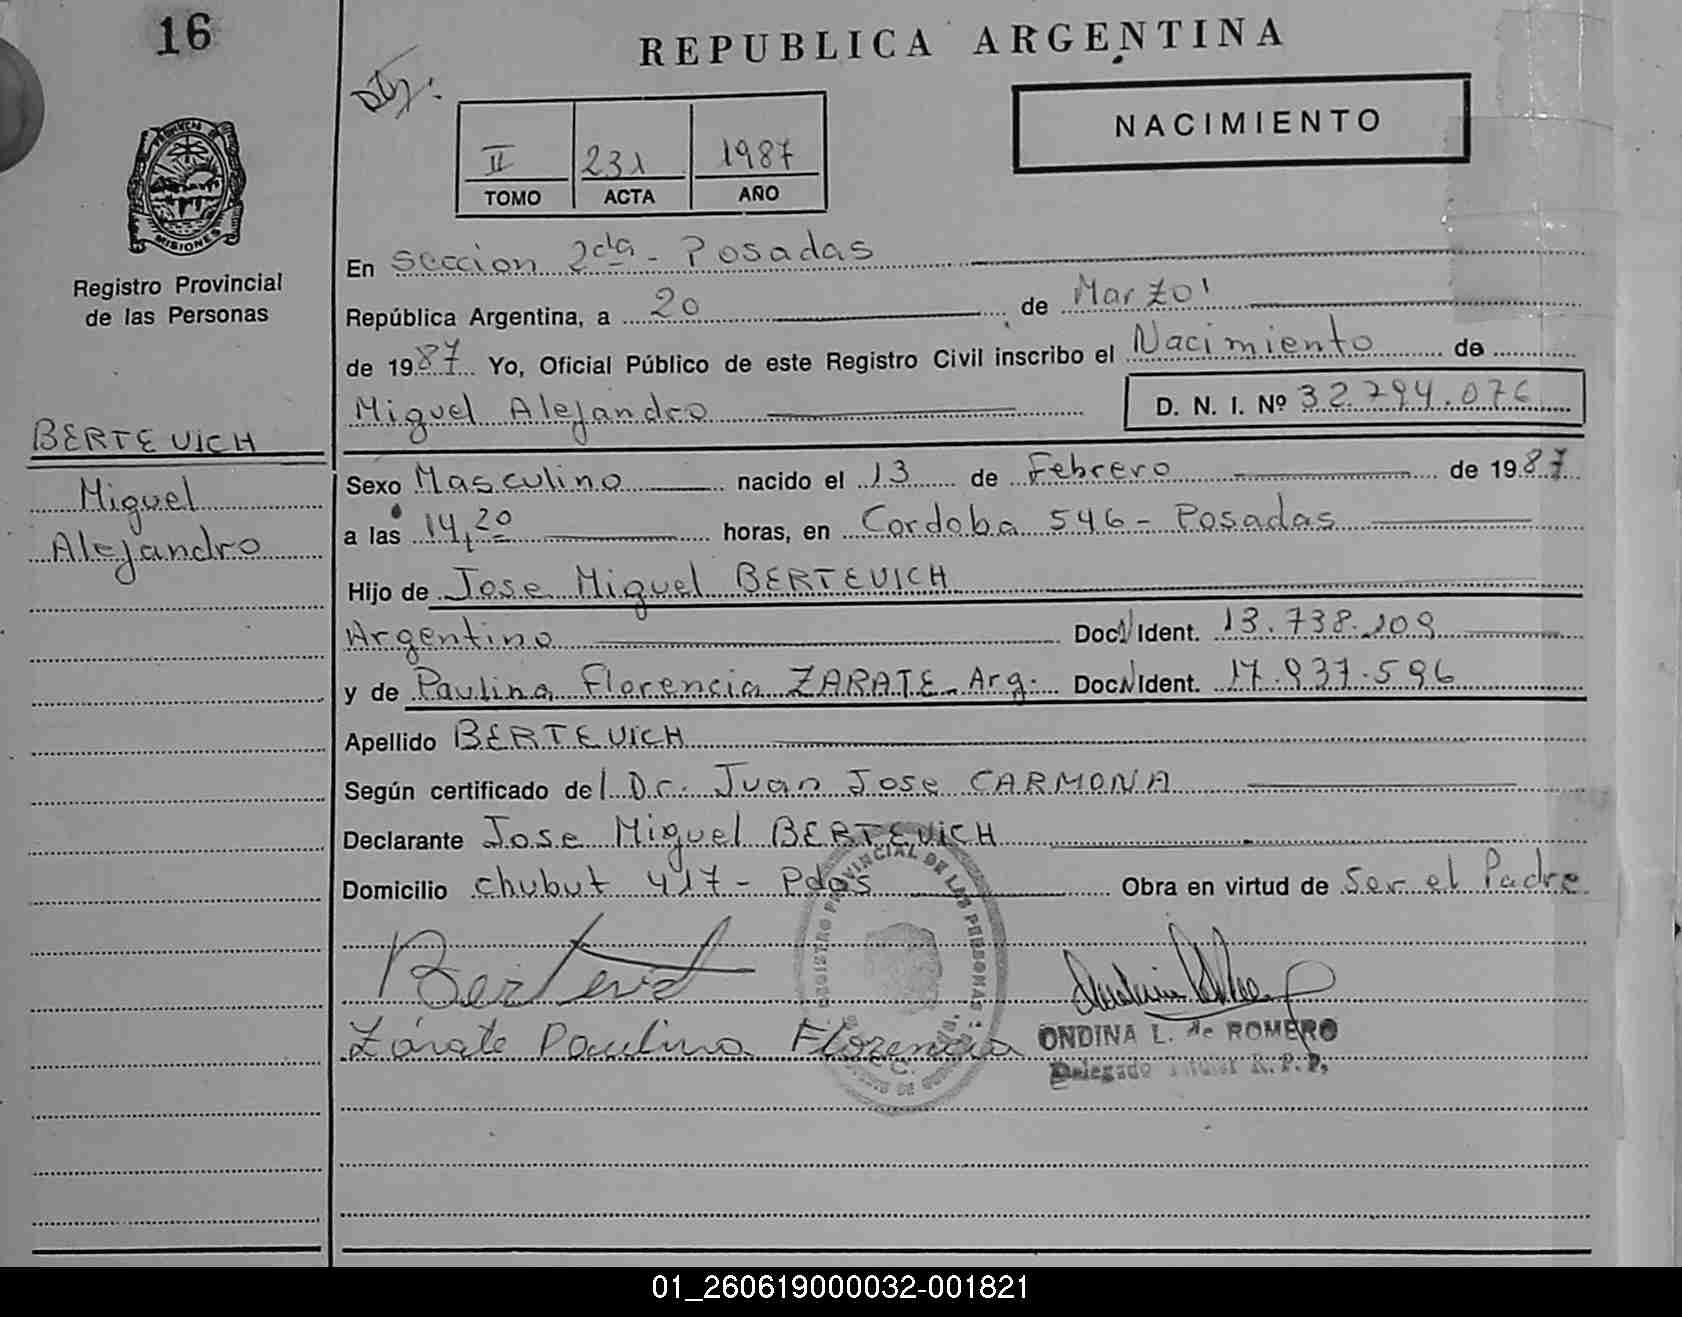 16
REPUBLICA ARGENTINA
NACIMIENTO
II 231 1987
TOMO ACTA AÑO
MISIONES
Registro Provincial
de las Personas
En Seccion 2da - Posadas
República Argentina, a 20 de Marzo
de 1987 Yo, Oficial Público de este Registro Civil inscribo el Nacimiento de
Miguel Alejandro D. N. I. Nº 32.794.076
BERTEVICH
Miguel
Alejandro
Sexo Masculino nacido el 13 de Febrero de 1987
a las 14,20 horas, en Cordoba 546 - Posadas
Hijo de Jose Miguel BERTEVICH
Argentino Doc. Ident. 13.738.209
y de Paulina Florencia ZARATE - Arg. Doc. Ident. 17.937.596
Apellido BERTEVICH
Según certificado del Dr. Juan Jose CARMONA
Declarante Jose Miguel BERTEVICH
Domicilio chubut 417 - Pdas Obra en virtud de Ser el Padre
REGISTRO PROVINCIAL DE LAS PERSONAS
Zárate Paulina Florencia
ONDINA L. de ROMERO
Delegado Titular R. P. P.
01_260619000032-001821